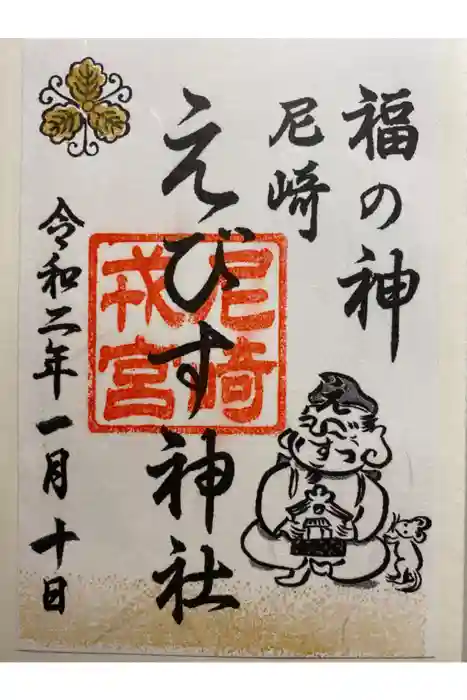 福の神
尼崎
えびす神社
尼崎
戎宮
令和二年一月十日
えびすっ